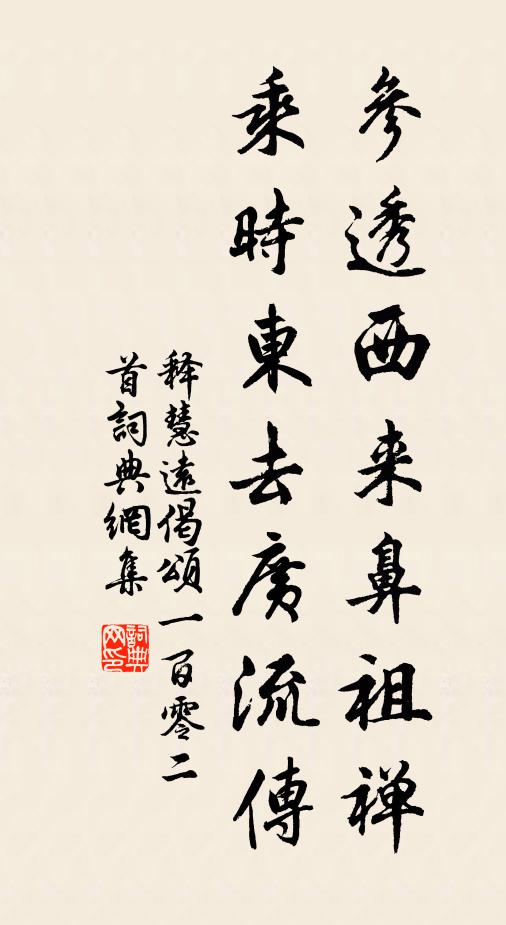 參透西来鼻祖禅
乘時東去廣流傳
释慧遠偈頌一百零二
首詞典網集
詞典网印